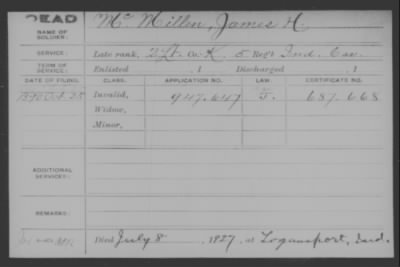 DEAD
NAME OF SOLDIER: Mc Millen, James H.
SERVICE: Late rank, 2 Lt. Co. K, 5 Reg't Ind. Cav.
TERM OF SERVICE: Enlisted , 1 Discharged , 1
DATE OF FILING. CLASS. APPLICATION NO. LAW. CERTIFICATE NO.
1890 Oct. 25 Invalid, 947.647 J. 687.668
Widow,
Minor,
ADDITIONAL SERVICES:
REMARKS:
Died July 8, 1927, at Logansport, Ind.